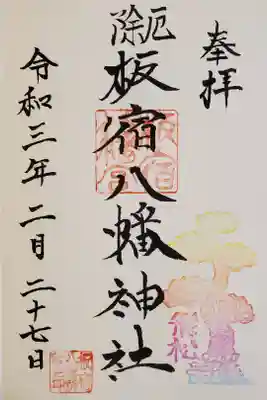 奉拝
厄除
板宿八幡神社
令和三年二月二十七日